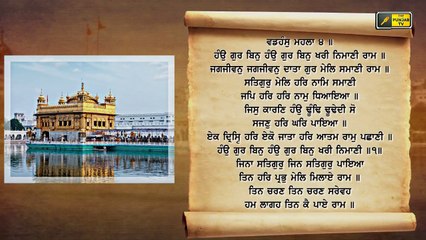 THE
PUNJAB
TV
ਵਡਹੰਸੁ ਮਹਲਾ ੪ ॥
ਹੰਉ ਗੁਰ ਬਿਨੁ ਹੰਉ ਗੁਰ ਬਿਨੁ ਖਰੀ ਨਿਮਾਣੀ ਰਾਮ ॥
ਜਗਜੀਵਨੁ ਜਗਜੀਵਨੁ ਦਾਤਾ ਗੁਰ ਮੇਲਿ ਸਮਾਣੀ ਰਾਮ ॥
ਸਤਿਗੁਰੁ ਮੇਲਿ ਹਰਿ ਨਾਮਿ ਸਮਾਣੀ
ਜਪਿ ਹਰਿ ਹਰਿ ਨਾਮੁ ਧਿਆਇਆ ॥
ਜਿਸੁ ਕਾਰਣਿ ਹੰਉ ਢੂੰਢਿ ਢੂਢੇਦੀ ਸੋ
ਸਜਣੁ ਹਰਿ ਘਰਿ ਪਾਇਆ ॥
ਏਕ ਦ੍ਰਿਸ੍ਟਿ ਹਰਿ ਏਕੋ ਜਾਤਾ ਹਰਿ ਆਤਮ ਰਾਮੁ ਪਛਾਣੀ ॥
ਹੰਉ ਗੁਰ ਬਿਨੁ ਹੰਉ ਗੁਰ ਬਿਨੁ ਖਰੀ ਨਿਮਾਣੀ ॥੧॥
ਜਿਨਾ ਸਤਿਗੁਰੁ ਜਿਨ ਸਤਿਗੁਰੁ ਪਾਇਆ
ਤਿਨ ਹਰਿ ਪ੍ਰਭੁ ਮੇਲਿ ਮਿਲਾਏ ਰਾਮ ॥
ਤਿਨ ਚਰਣ ਤਿਨ ਚਰਣ ਸਰੇਵਹ
ਹਮ ਲਾਗਹ ਤਿਨ ਕੈ ਪਾਏ ਰਾਮ ॥